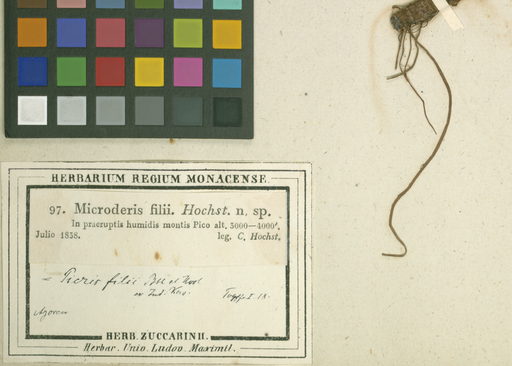 HERBARIUM REGIUM MONACENSE.
97. Microderis filii. Hochst. n. sp.
In praeruptis humidis montis Pico alt. 3000—4000'.
Julio 1838. leg. C. Hochst.
= Picris filii
Azoren
HERB. ZUCCARINII.
Herbar. Univ. Ludov. Maximil.